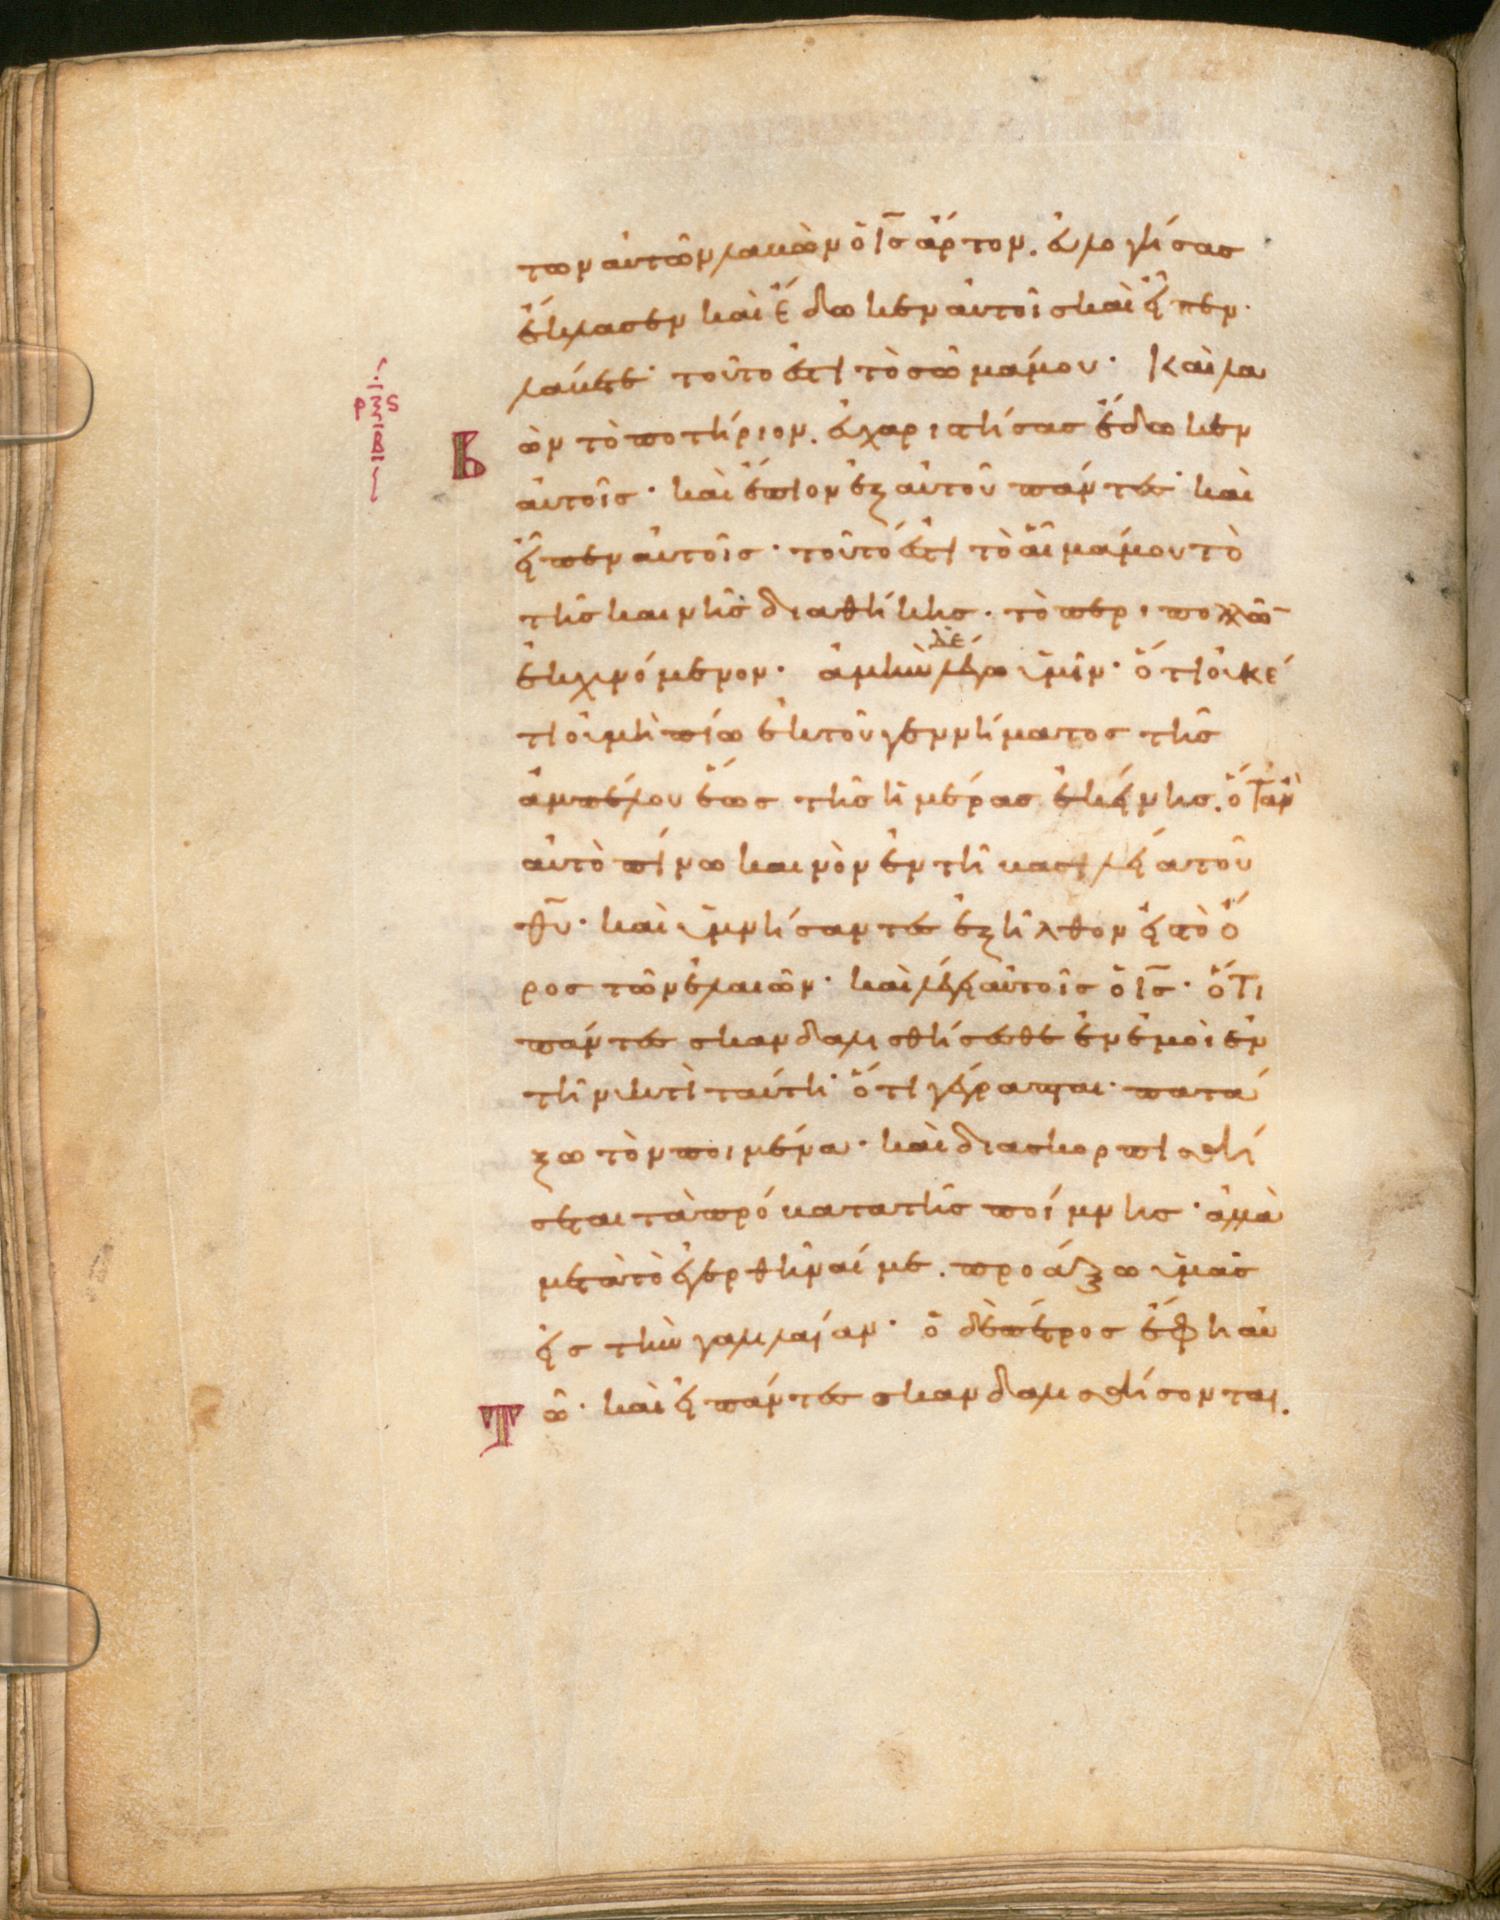 των αὐτῶν λαβὼν ὁ ἰς ἄρτον. εὐλογήσας
ἔκλασεν καὶ ἔδωκεν αὐτοῖς καὶ εἶπεν·
λάβετε· τοῦτό ἐστι τὸ σῶμά μου· Καὶ λα
Βὼν τὸ ποτήριον. εὐχαριστήσας ἔδωκεν
αὐτοῖς· καὶ ἔπιον ἐξ αὐτοῦ πάντες· καὶ
εἶπεν αὐτοῖς· τοῦτό ἐστι τὸ αἷμά μου τὸ
τῆς καινῆς διαθήκης. τὸ περι πολλῶ
ἐκχυνόμενον· ἀμὴν δὲ λέγω ὑμῖν· ὅτι οὐκέ
τι οὐ μὴ πίω ἐκ τοῦ γεννήματος τῆς
ἀμπέλου ἕως τῆς ἡμέρας ἐκείνης. ὅταν
αὐτὸ πίνω καινὸν ἐν τῆ βασιλεία τοῦ
θυ· καὶ ὑμνήσαντες ἐξῆλθον εἰς τὸ ὄ
ρος τῶν ἐλαιῶν· καὶ λέγει αὐτοῖς ὁ ἰς· ὅτι
πάντες σκανδαλισθήσεσθε ἐν ἐμοὶ ἐν
τῆ νυκτὶ ταύτη· ὅτι γέγραπται· πατά
ξω τὸν ποιμένα· καὶ διασκορπισθή
σεται τὰ πρόβατα τῆς ποίμνης· ἀλλὰ
μετὰ τὸ ἐγερθῆναί με. προάξω ὑμᾶς
εἰς τὴν γαλιλαίαν· ὁ δὲ πέτρος ἔφη αὐ
Τῶ· καὶ εἰ πάντες σκανδαλισθήσονται.